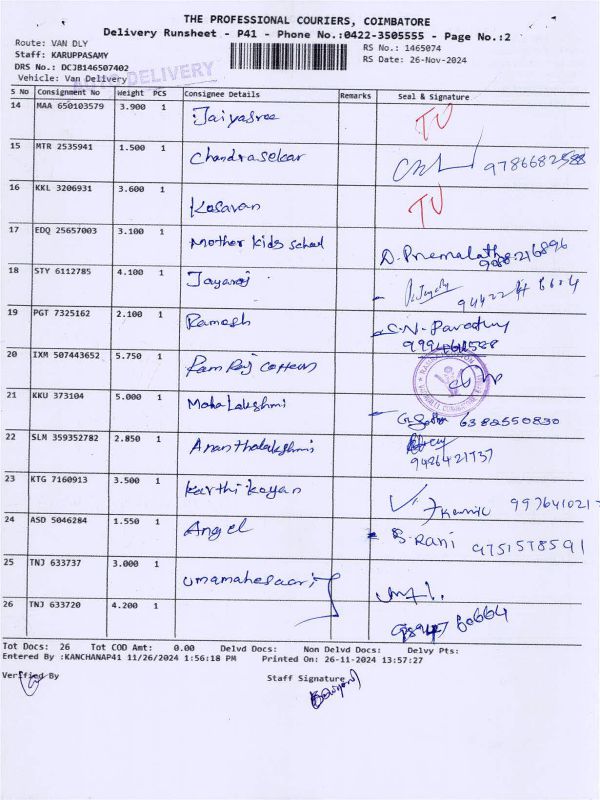 THE PROFESSIONAL COURIERS, COIMBATORE
Delivery Runsheet - P41 - Phone No.:0422-3505555 - Page No.:2
Route: VAN DLY
RS No.: 1465074
Staff: KARUPPASAMY
RS Date: 26-Nov-2024
DRS No.: DCJB146507402
DELIVERY
Vehicle: Van Delivery
S No Consignment No Weight PCS Consignee Details Remarks Seal & Signature
14 MAA 650103579 3.900 1 Jaiyasree TU
15 MTR 2535941 1.500 1 Chandrasekar 9786682588
16 KKL 3206931 3.600 1 Kasavan TU
17 EDQ 25657003 3.100 1 Mother kids school D. Premalatha
18 STY 6112785 4.100 1 Jayaraj
19 PGT 7325162 2.100 1 Ramesh
20 IXM 507443652 5.750 1 Ram Raj cottons
21 KKU 373104 5.000 1 Maha Lakshmi 6382550830
22 SLM 359352782 2.850 1 Ananthalakshmi
9486421737
23 KTG 7160913 3.500 1 Karthikeyan
24 ASD 5046284 1.550 1 Angel S. Rani 9751578591
25 TNJ 633737 3.000 1 umamaheswari
26 TNJ 633720 4.200 1
Tot Docs: 26 Tot COD Amt: 0.00 Delvd Docs: Non Delvd Docs: Delvy Pts:
Entered By :KANCHANAP41 11/26/2024 1:56:18 PM Printed On: 26-11-2024 13:57:27
Verified By Staff Signature